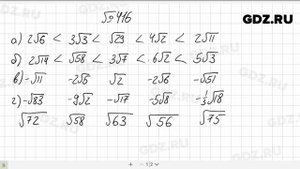 GDZ.RU
№416
а) 2√6 < 3√3 < √29 < 4√2 < 2√11
б) 2√14 < √58 < 3√7 < 6√2 < 5√3
в) -√11 -2√6 √2 -2√6 -√51
г) -√83 -9√2 -√17 -5√8 -⅓√18
√72 √58 √63 √56 √75
1/2
GDZ.RU